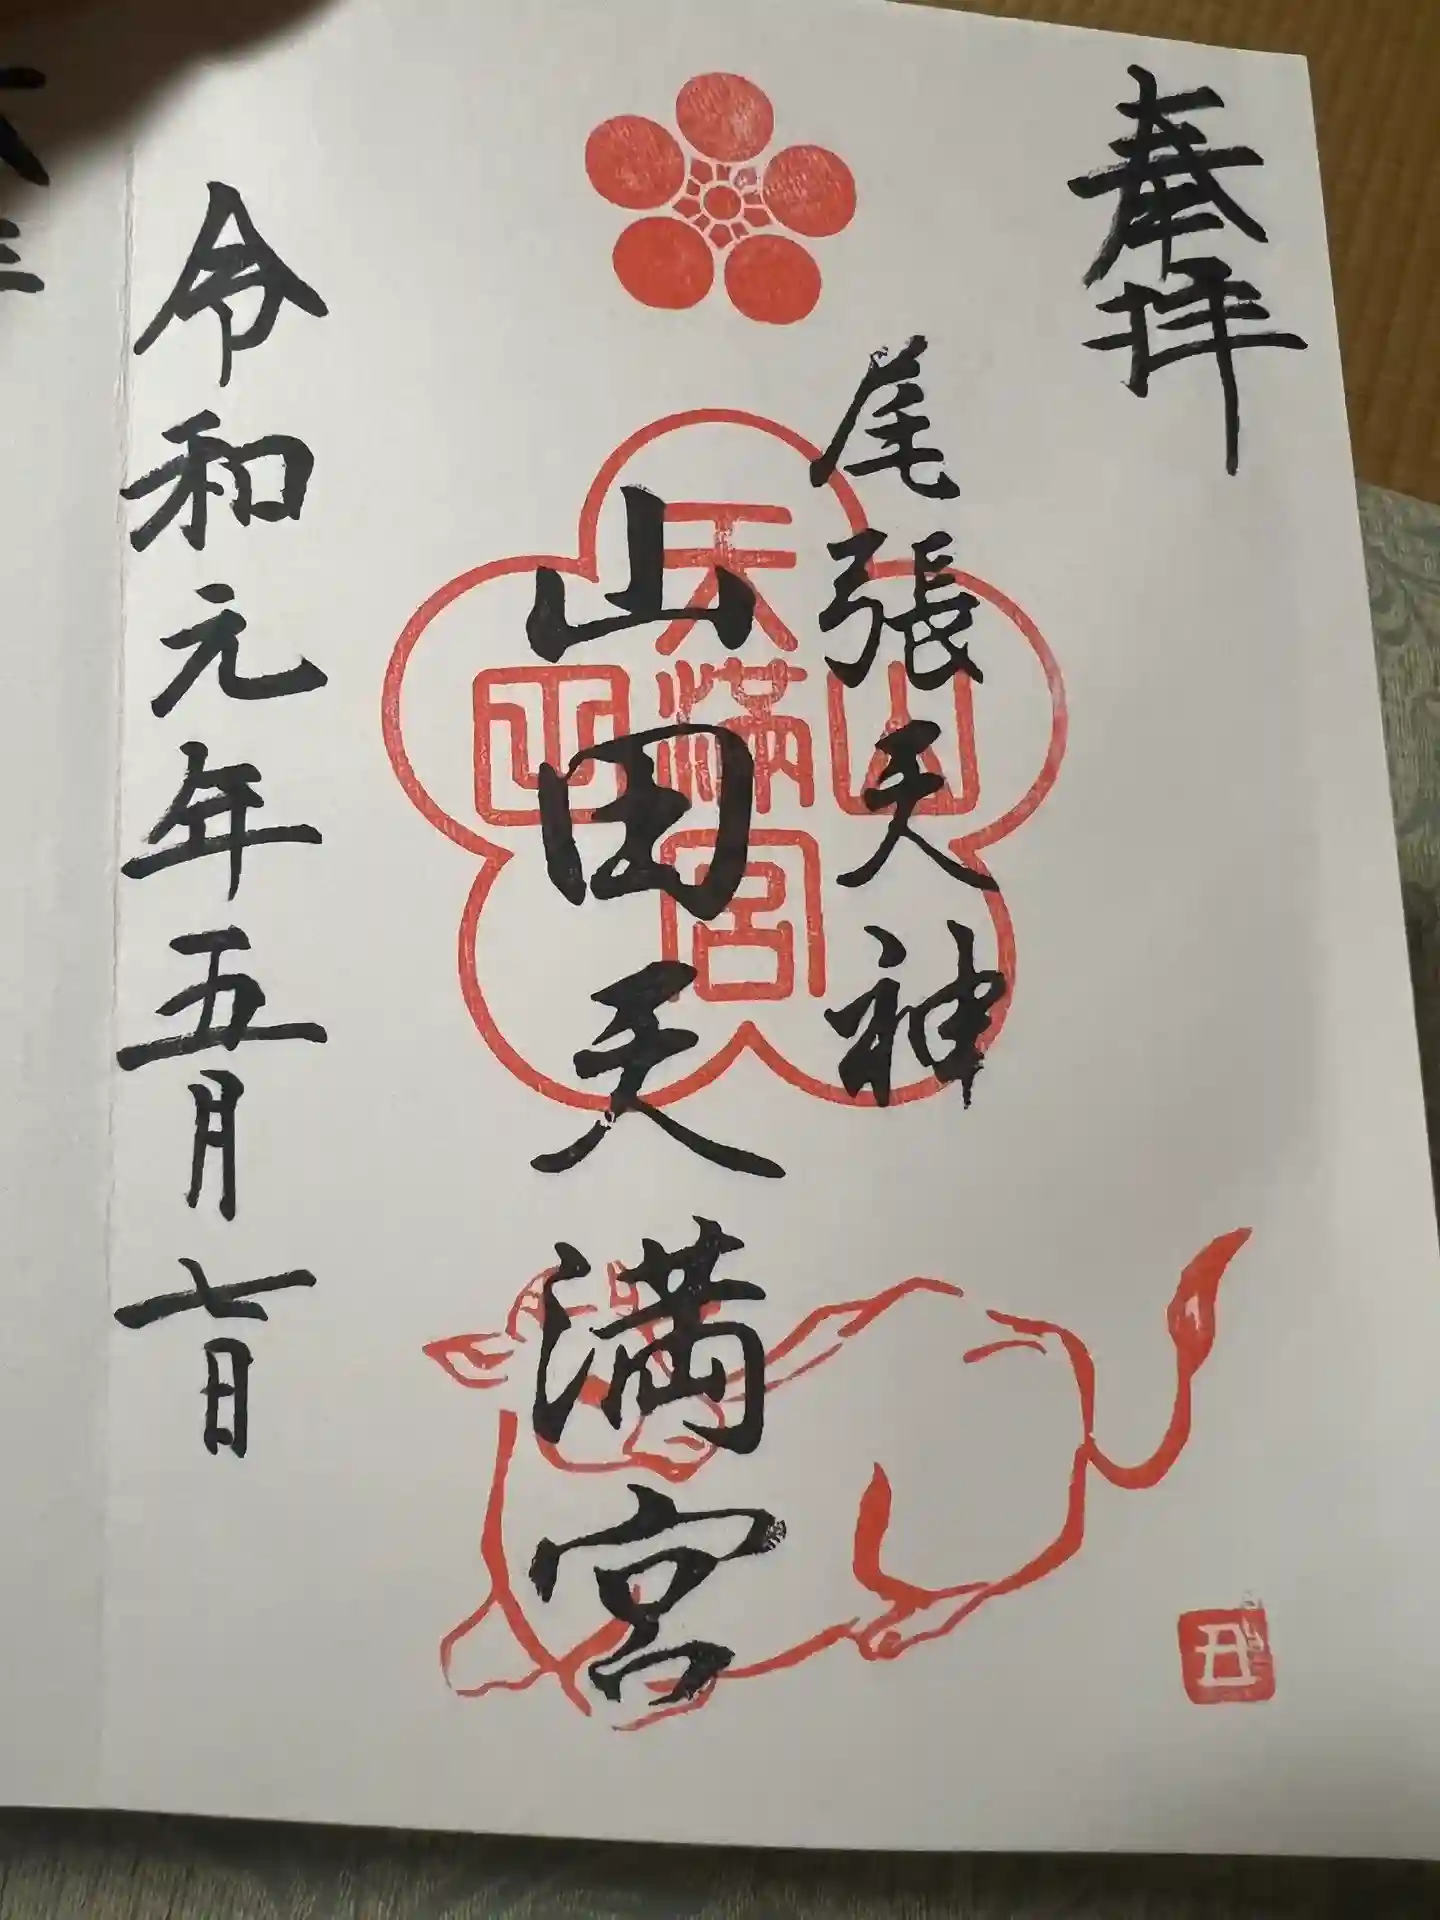 奉拝
尾張天神
山田天満宮
令和元年五月七日
山
天満宮
田
丑